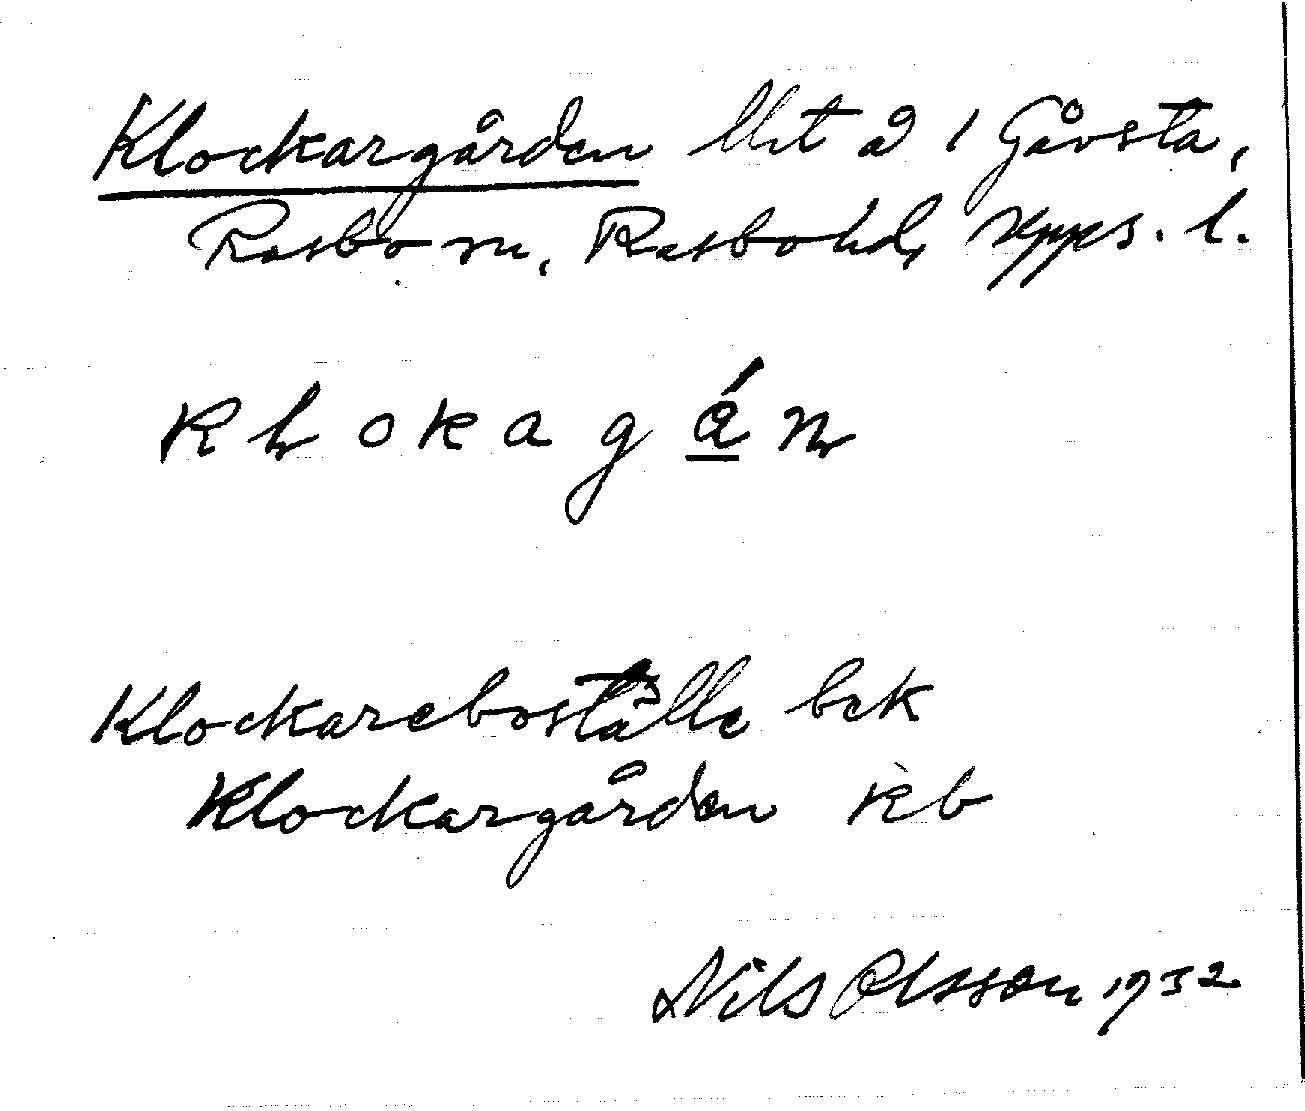 Klockargården llit å 1 Gåvsta,
Rasbo sn, Rasbo hd, Upps. l.
klokagán
Klockareboställe bek
Klockargården kb
Nils Olsson 1932